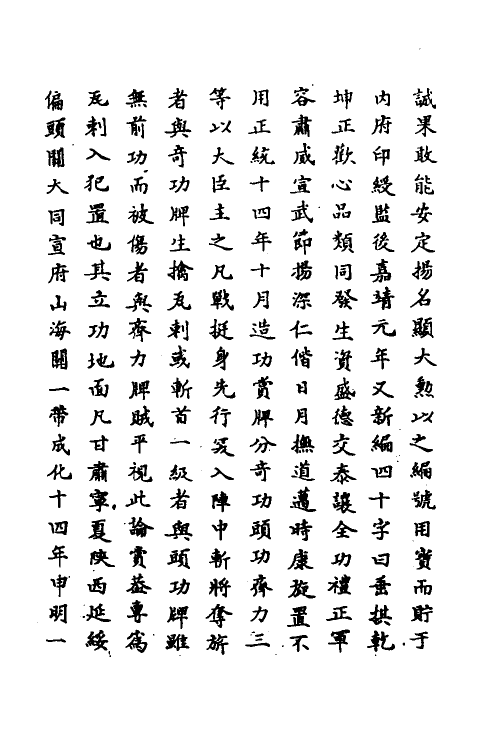 誠果敢能安定揚名顯大勲以之編號用寳而貯于
内府印綬監後嘉靖元年又新編四十字曰垂拱乾
坤正歡心品類同發生資盛德交泰讓全功禮正軍
容肅威宣武節揚深仁偕日月撫道邁時康旋置不
用正統十四年十月造功賞牌分奇功頭功齊力三
等以大臣主之凡戰挺身先行突入陣中斬將奪旂
者與奇功牌生擒瓦剌或斬首一級者與頭功牌雖
無前功而被傷者與齊力牌賊平視此論賞葢專爲
瓦剌入犯置也其立功地面凡甘肅寧夏陜西延綏
偏頭關大同宣府山海關一帶成化十四年申明一